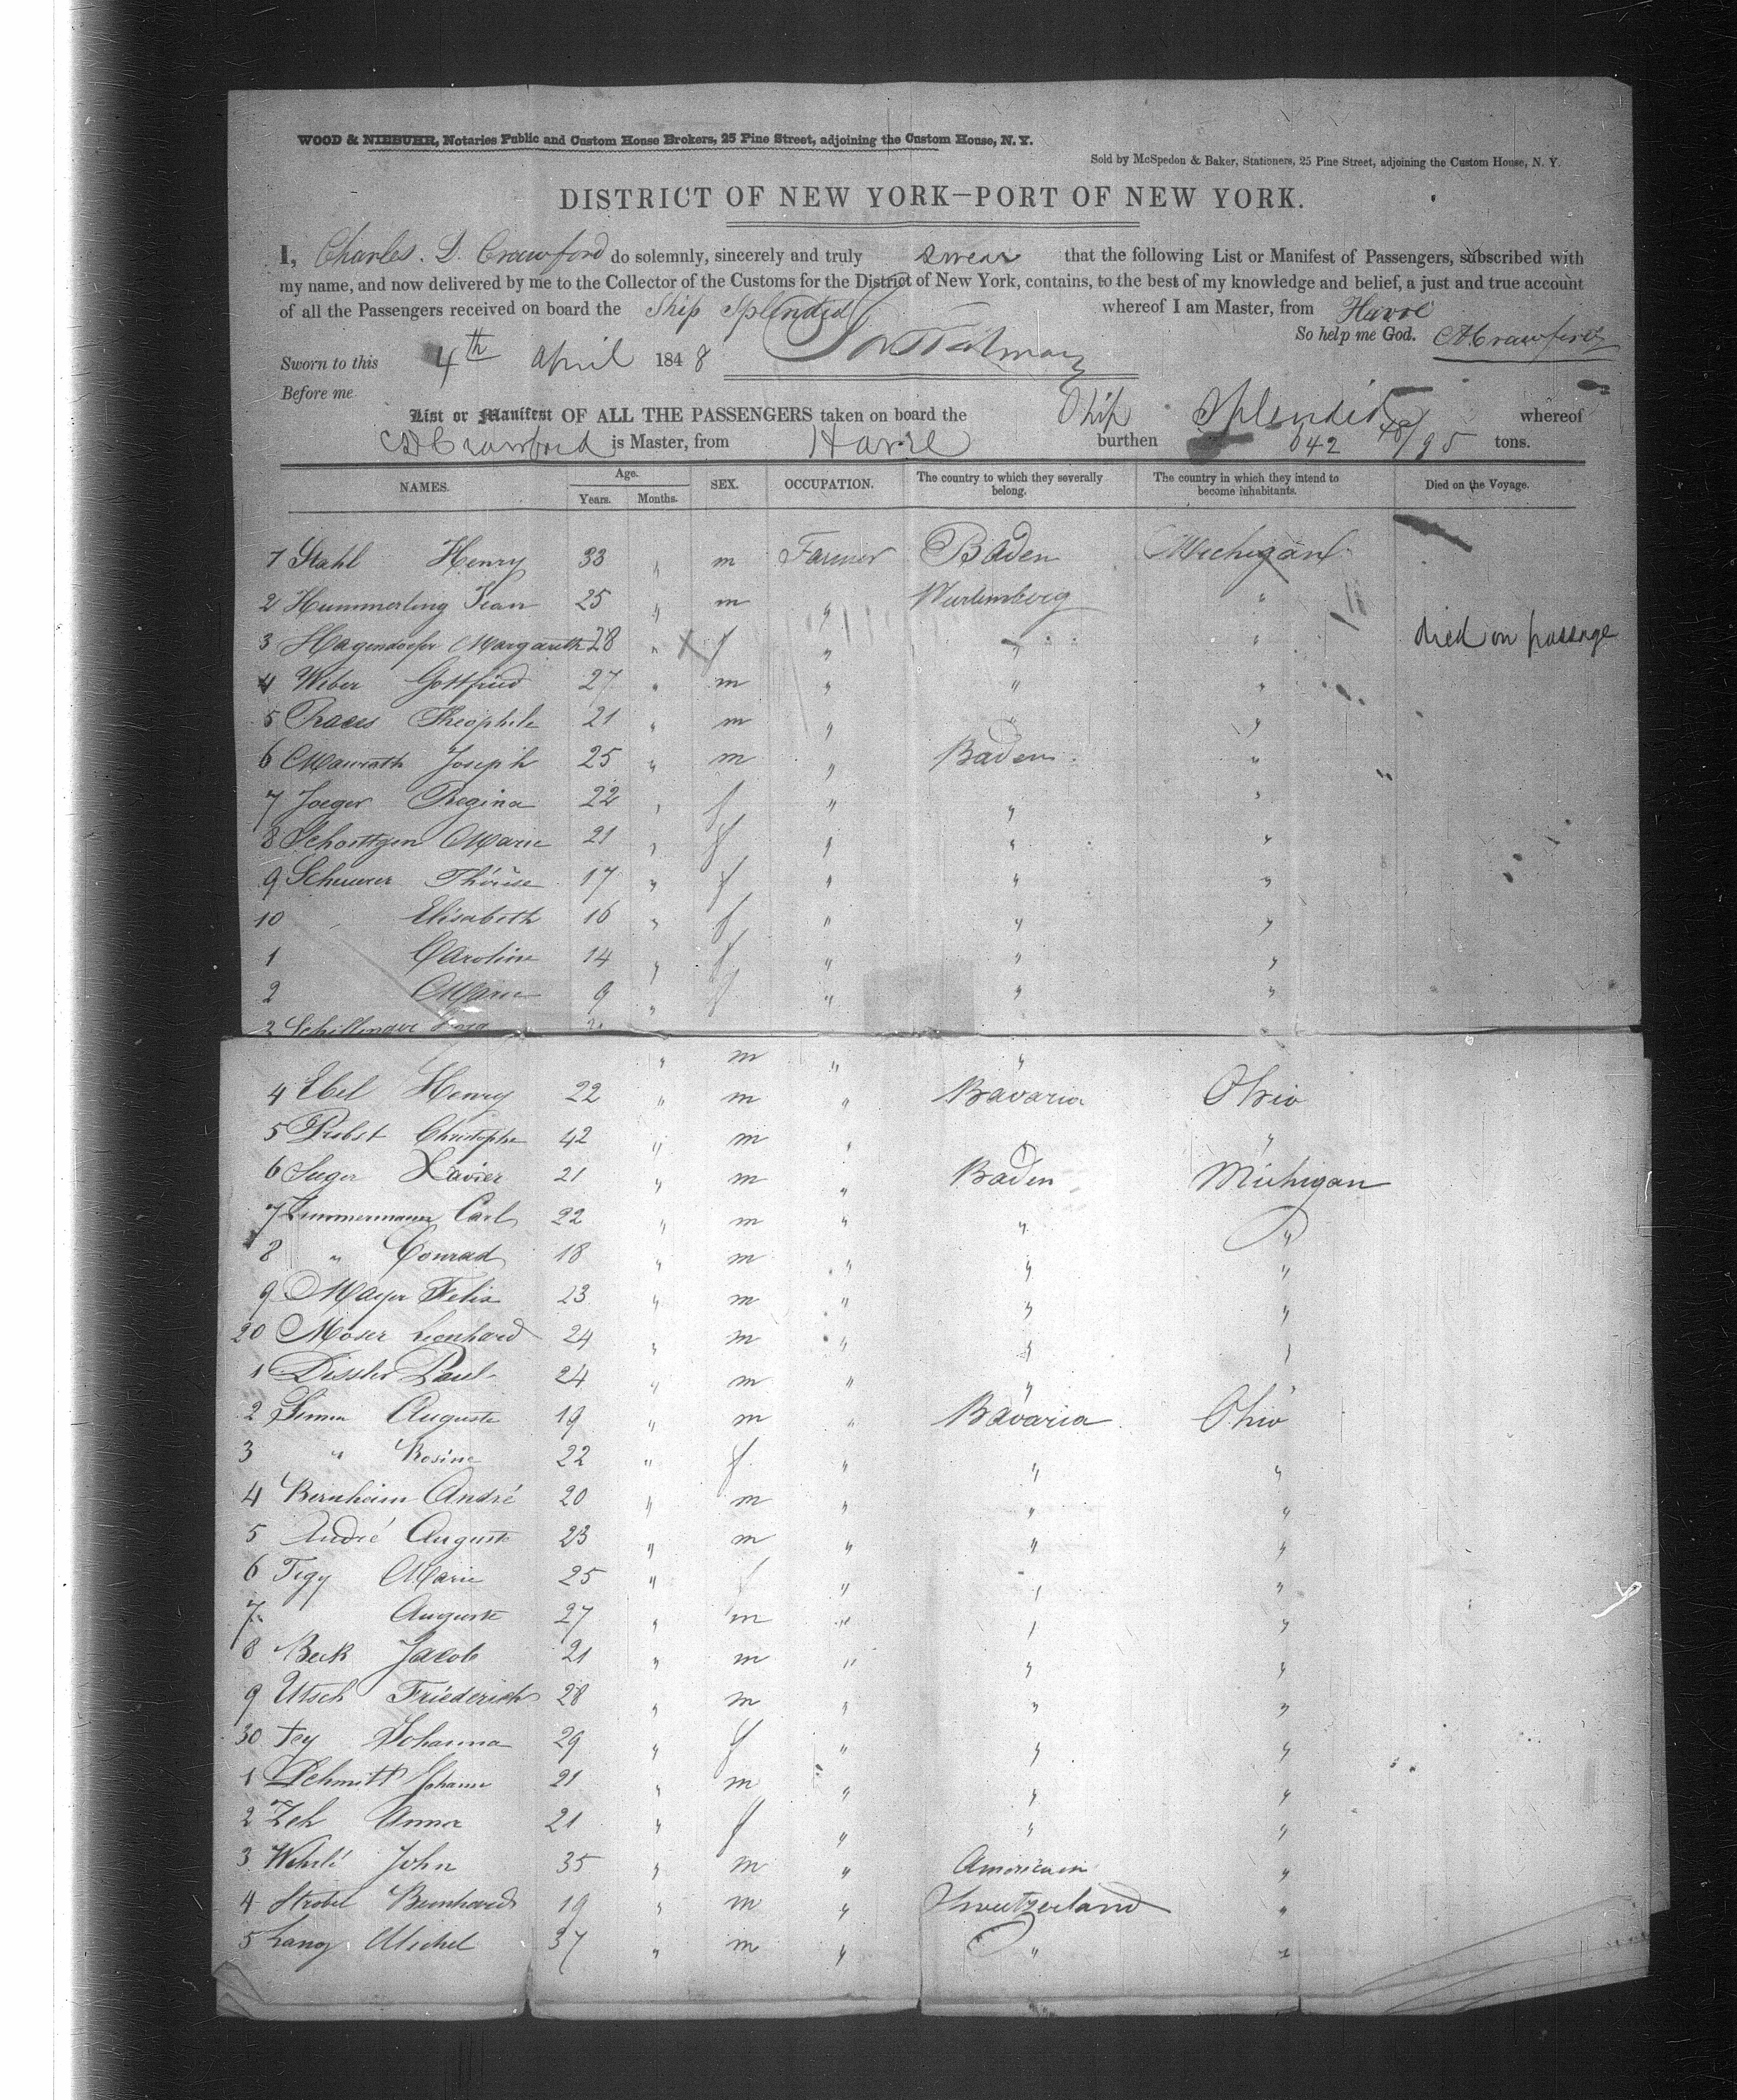 WOOD & NIEBUHR, Notaries Public and Custom House Brokers, 25 Pine Street, adjoining the Custom House, N. Y.
Sold by McSpedon & Baker, Stationers, 25 Pine Street, adjoining the Custom House, N. Y.
DISTRICT OF NEW YORK—PORT OF NEW YORK.
I, Charles. D. Crawford do solemnly, sincerely and truly swear that the following List or Manifest of Passengers, subscribed with
my name, and now delivered by me to the Collector of the Customs for the District of New York, contains, to the best of my knowledge and belief, a just and true account
of all the Passengers received on board the Ship Splendid whereof I am Master, from Havre
So help me God. CD Crawford
Sworn to this 4th April 1848
Before me
List or Manifest OF ALL THE PASSENGERS taken on board the Ship Splendid whereof
CD Crawford is Master, from Havre burthen 642 48/95 tons.
NAMES. Age. Years. Months. SEX. OCCUPATION. The country to which they severally belong. The country in which they intend to become inhabitants. Died on the Voyage.
1 Stahl Henry 33 " m Farmer Baden Michigan
2 Hummerling Jean 25 " m " Wurtemberg "
3 Hagendorfer Margareth 28 " X f " " " died on passage
4 Weber Gottfried 27 " m " " "
5 Theophile 21 " m " " "
6 Maurath Joseph 25 " m " Baden "
7 Jaeger Regina 22 " f " " "
8 Marie 21 " f " " "
9 Scheurer Thérèse 17 " f " " "
10 Elisabeth 16 " f " " "
1 Caroline 14 " f " " "
2 Marie 9 " f " " "
3 " m " "
4 Ebel Henry 22 " m " Bavaria Ohio
5 Probst Christophe 42 " m " "
6 Seger Xavier 21 " m " Baden Michigan
7 Zimmermann Carl 22 " m " " "
8 " Conrad 18 " m " " "
9 Mayer Felix 23 " m " " "
20 Moser Leonhard 24 " m " " "
1 Dissler Paul 24 " m " " "
2 Simon Auguste 19 " m " Bavaria Ohio
3 " Rosine 22 " f " " "
4 Bernheim André 20 " m " " "
5 André Auguste 23 " m " " "
6 Tegy Marie 25 " f " " "
7 Auguste 27 " m " " "
8 Beck Jacob 21 " m " " "
9 Utsch Friederich 28 " m " " "
30 Fey Johanna 29 " f " " "
1 Schmitt Johann 21 " m " " "
2 Zeh Anna 21 " f " " "
3 Wehrlé John 35 " m " American "
4 Strobel Bernhard 19 " m " Switzerland "
5 Lang Michel 37 " m " " "